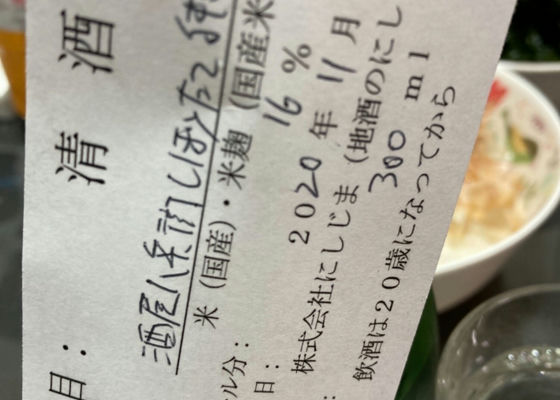 目： 清 酒
酒屋八兵衛しぼりたて純
米（国産）・米麹（国産米
ル分： 16 %
日： 2020年 11月
株式会社にしじま（地酒のにし
： 300 ml
飲酒は20歳になってから